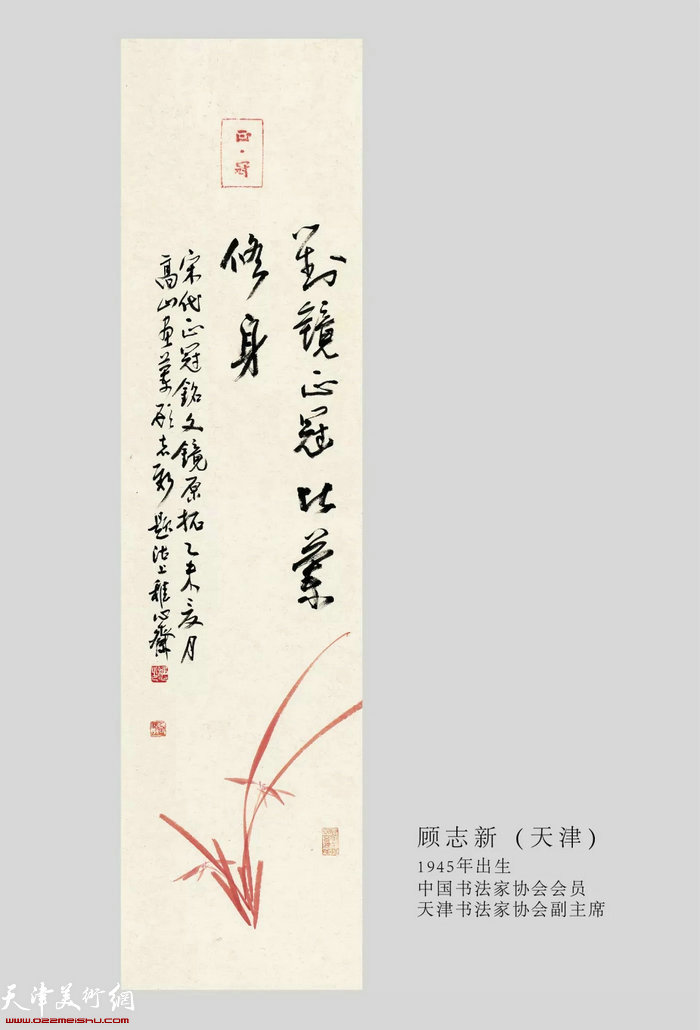 正·冠
對鏡正冠比蘭
修身
宋代正冠銘文鏡原拓乙未六月
高山畫蘭顧志新題沽上雅心齋
顾志新（天津）
1945年出生
中国书法家协会会员
天津书法家协会副主席
天津美術網
www.022meishu.com